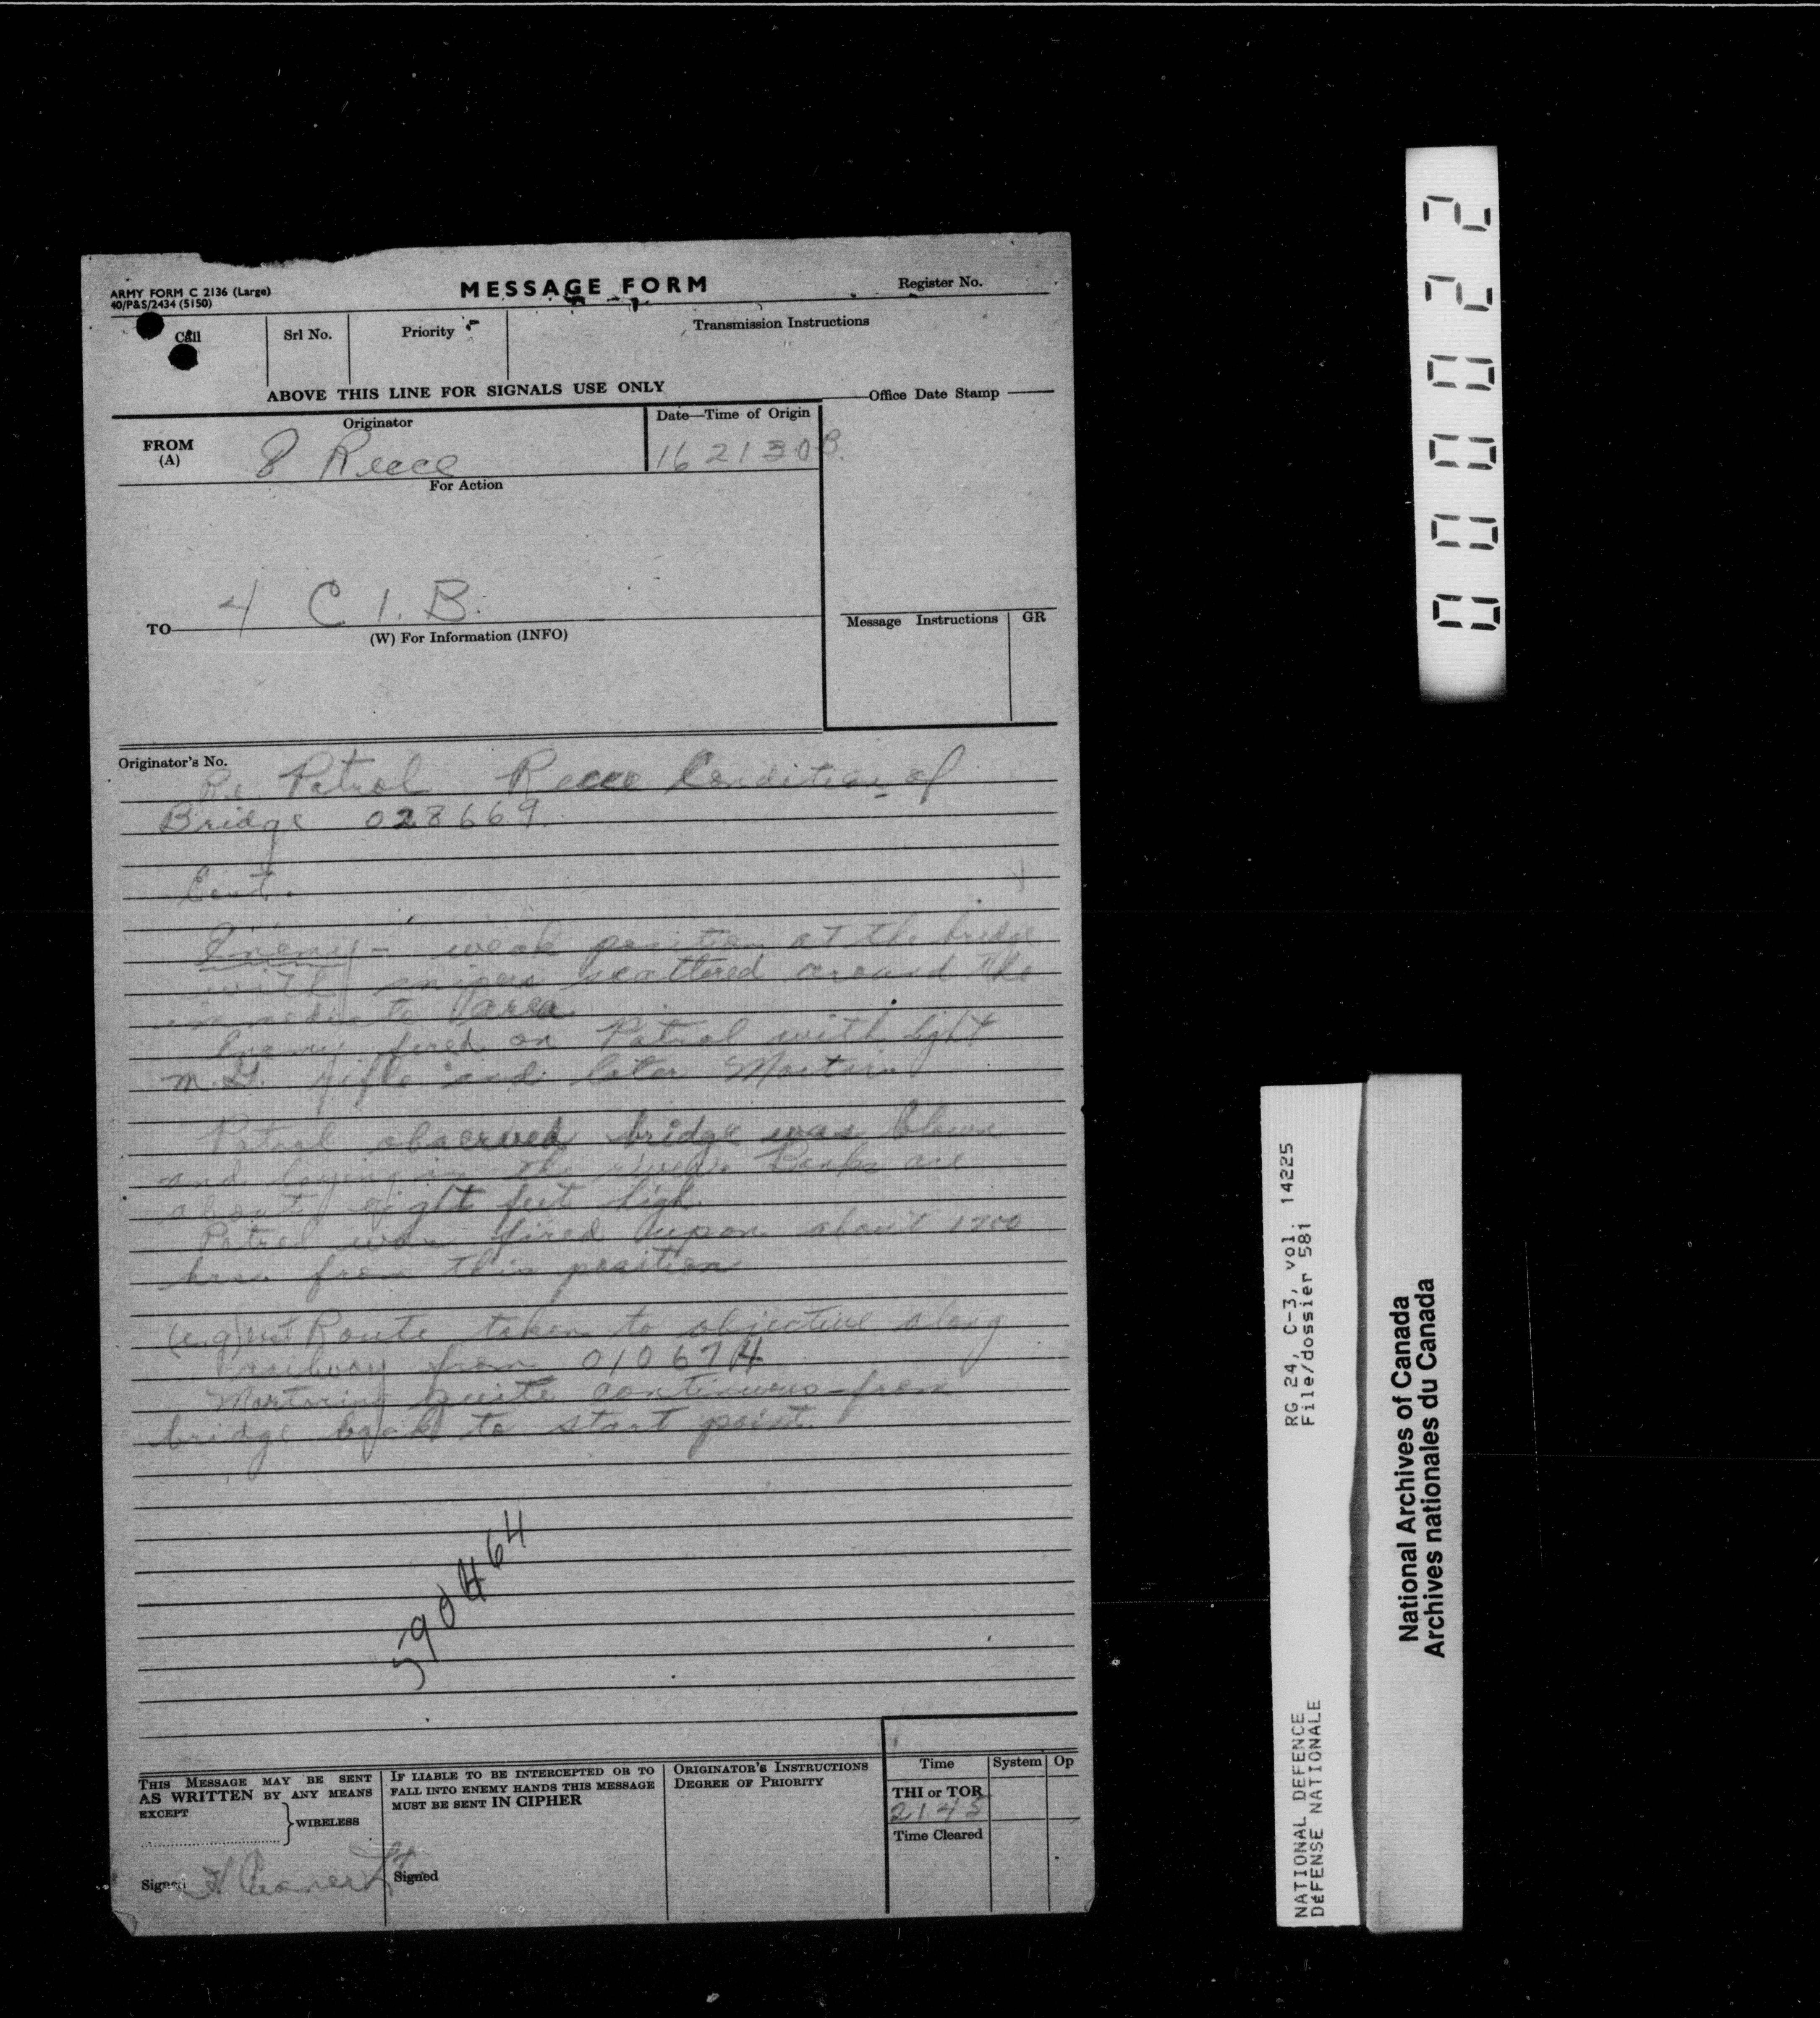 ARMY FORM C 2136 (Large)
40/P&S/2434 (5150)
MESSAGE FORM
Register No.
Call
Srl No.
Priority
Transmission Instructions
ABOVE THIS LINE FOR SIGNALS USE ONLY
Office Date Stamp
Originator
Date—Time of Origin
FROM
(A)
8 Recce
162130B.
For Action
4 C.I.B.
TO
(W) For Information (INFO)
Message Instructions
GR
Originator's No.
Re Patrol Recce Condition of
Bridge 028669.
Cont.
Enemy - weak position at the bridge
with snipers scattered around the
immediate area.
Enemy fired on Patrol with light
M.G. rifle and later Mortars
Patrol observed bridge was blown
and laying in the river. Banks are
about eight feet high.
Patrol was fired upon about 1700
hrs. from this position
Route taken to objective along
railway from 010674
Mortaring quite continuous from
bridge back to start point.
590464
THIS MESSAGE MAY BE SENT
AS WRITTEN BY ANY MEANS
EXCEPT
WIRELESS
Signed
IF LIABLE TO BE INTERCEPTED OR TO
FALL INTO ENEMY HANDS THIS MESSAGE
MUST BE SENT IN CIPHER
Signed
ORIGINATOR'S INSTRUCTIONS
DEGREE OF PRIORITY
Time
System
Op
THI or TOR
2145
Time Cleared
000022
RG 24, C-3, vol. 14225
File/dossier 581
NATIONAL DEFENCE
DÉFENSE NATIONALE
National Archives of Canada
Archives nationales du Canada